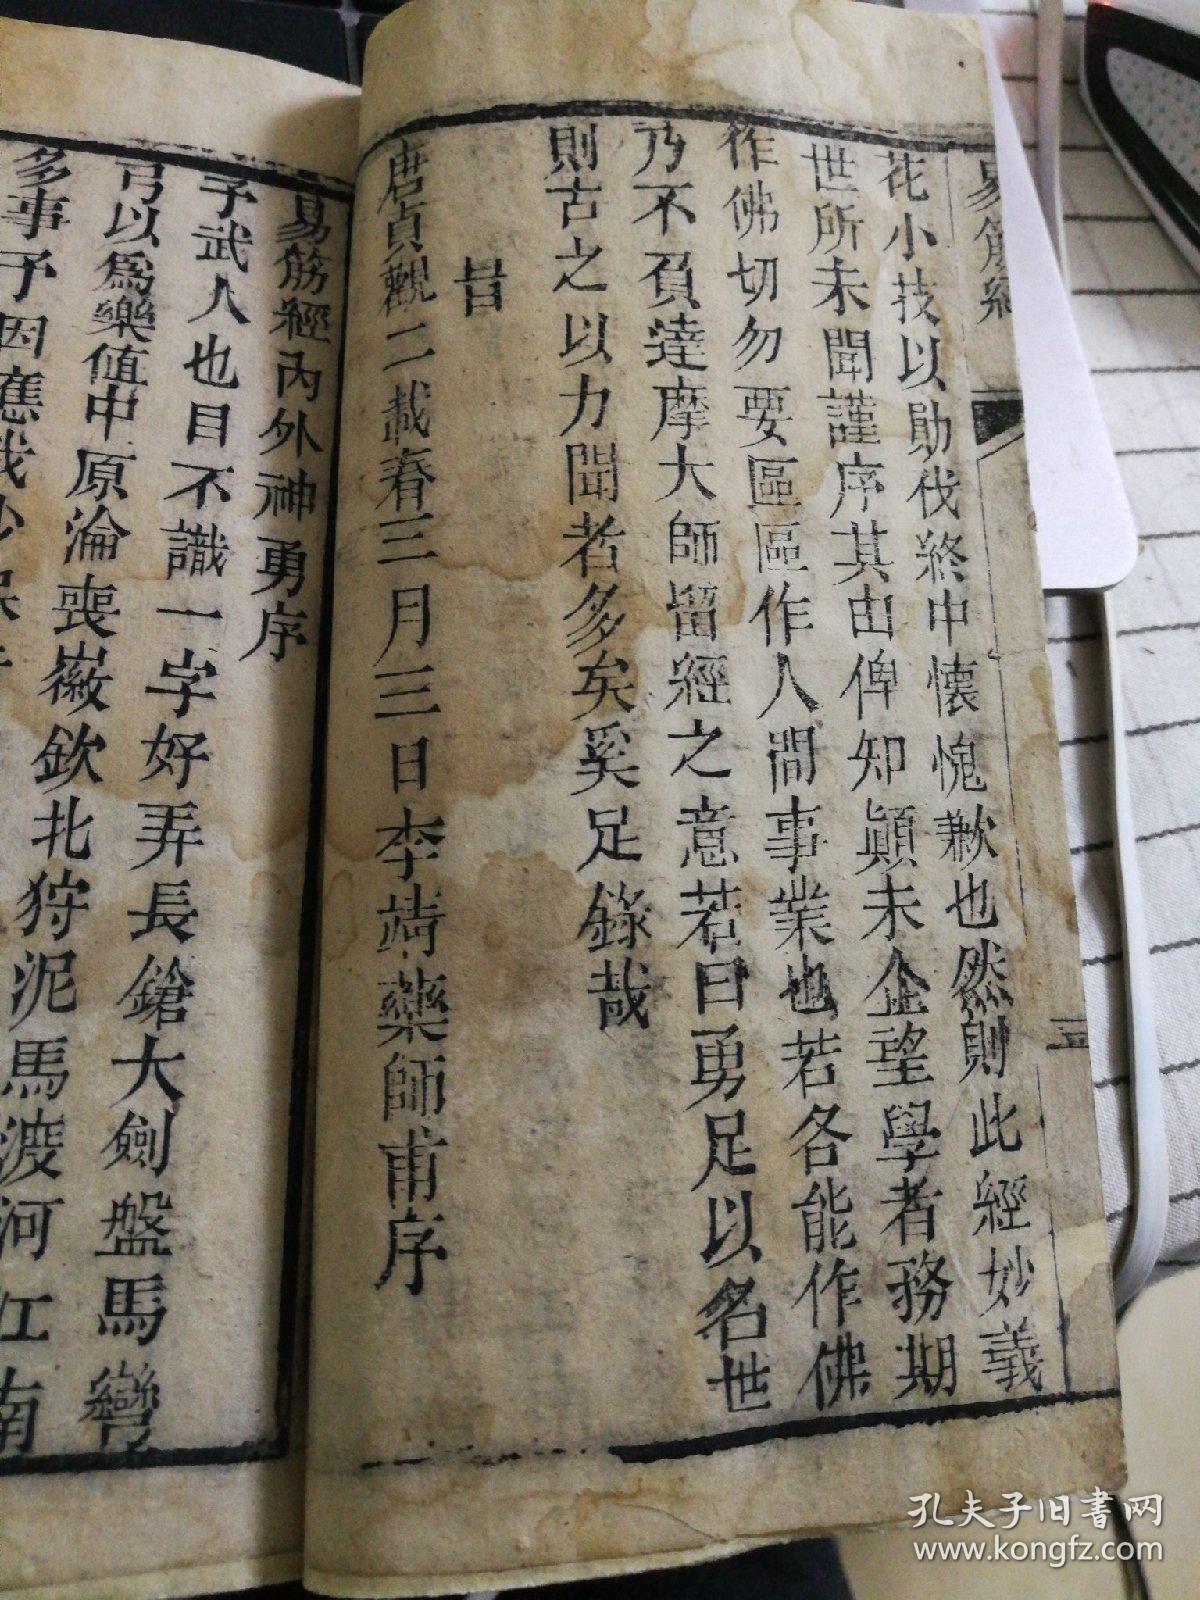 易筋經
三
花小技以勛伐終中懷愧歉也然則此經妙義
世所未聞謹序其由俾知顛末企望學者務期
作佛切勿要區區作人間事業也若各能作佛
乃不負達摩大師留經之意若曰勇足以名世
則古之以力聞者多矣奚足錄哉
旹
唐貞觀二載春三月三日李靖藥師甫序
易筋經內外神勇序
予武人也目不識一字好弄長鎗大劍盤馬彎
弓以爲樂値中原淪喪徽欽北狩泥馬渡河江南
多事予因應我少保
孔夫子旧書网
www.kongfz.com